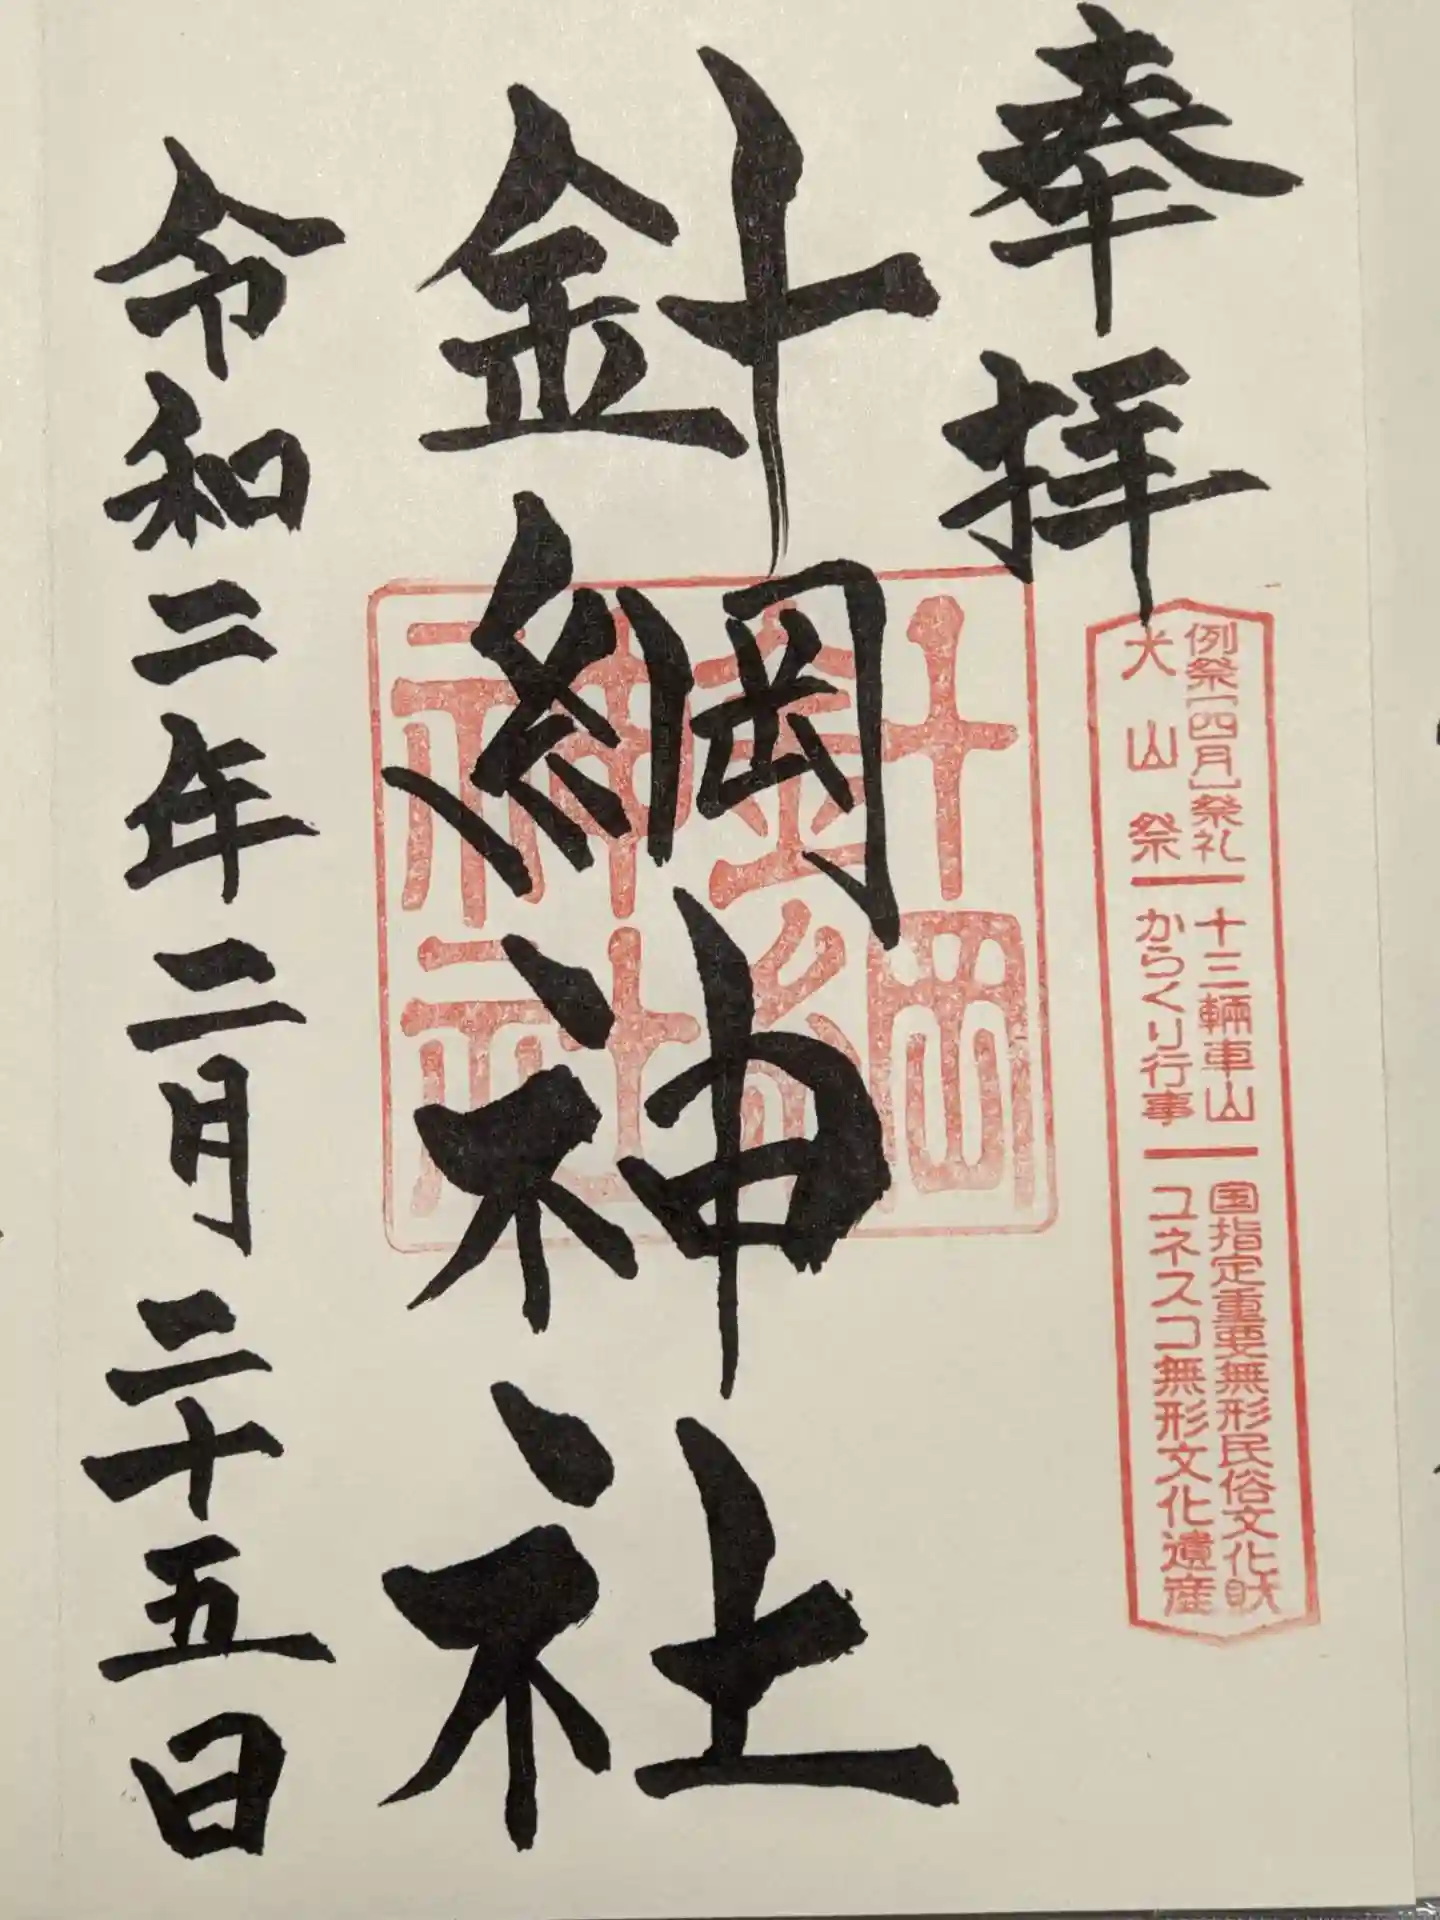 奉拝
例祭[四月]祭礼 十三輛車山 国指定重要無形民俗文化財
犬山祭 からくり行事 ユネスコ無形文化遺産
針綱神社
針綱
神社
令和二年二月二十五日